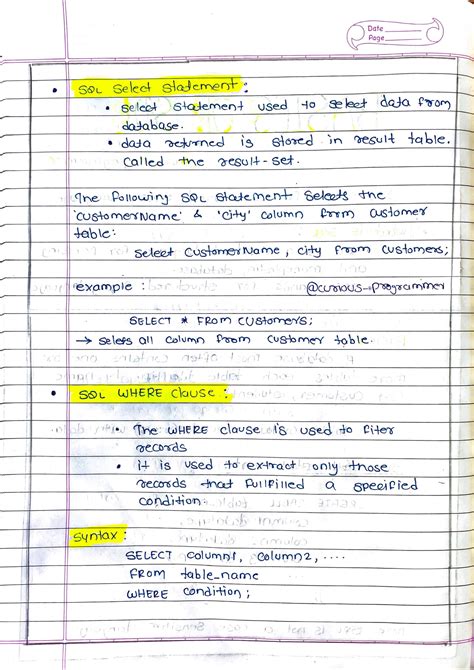 Date
Page
• SQL Select Statement :
• Select Statement used to select data from
database.
• data returned is stored in result table.
called the result-set.
The following SQL statement selects the
'customerName' & 'City' column from customer
table:
select CustomerName, city from customers;
example : @curious_.programmer
SELECT * FROM Customers;
→ selects all column from customer table.
• SQL WHERE Clause :
• The WHERE clause is used to filter
records
• it is used to extract only those
records that fullfilled a specified
condition.
Syntax :
SELECT column1, column2, ....
FROM table_name
WHERE condition;